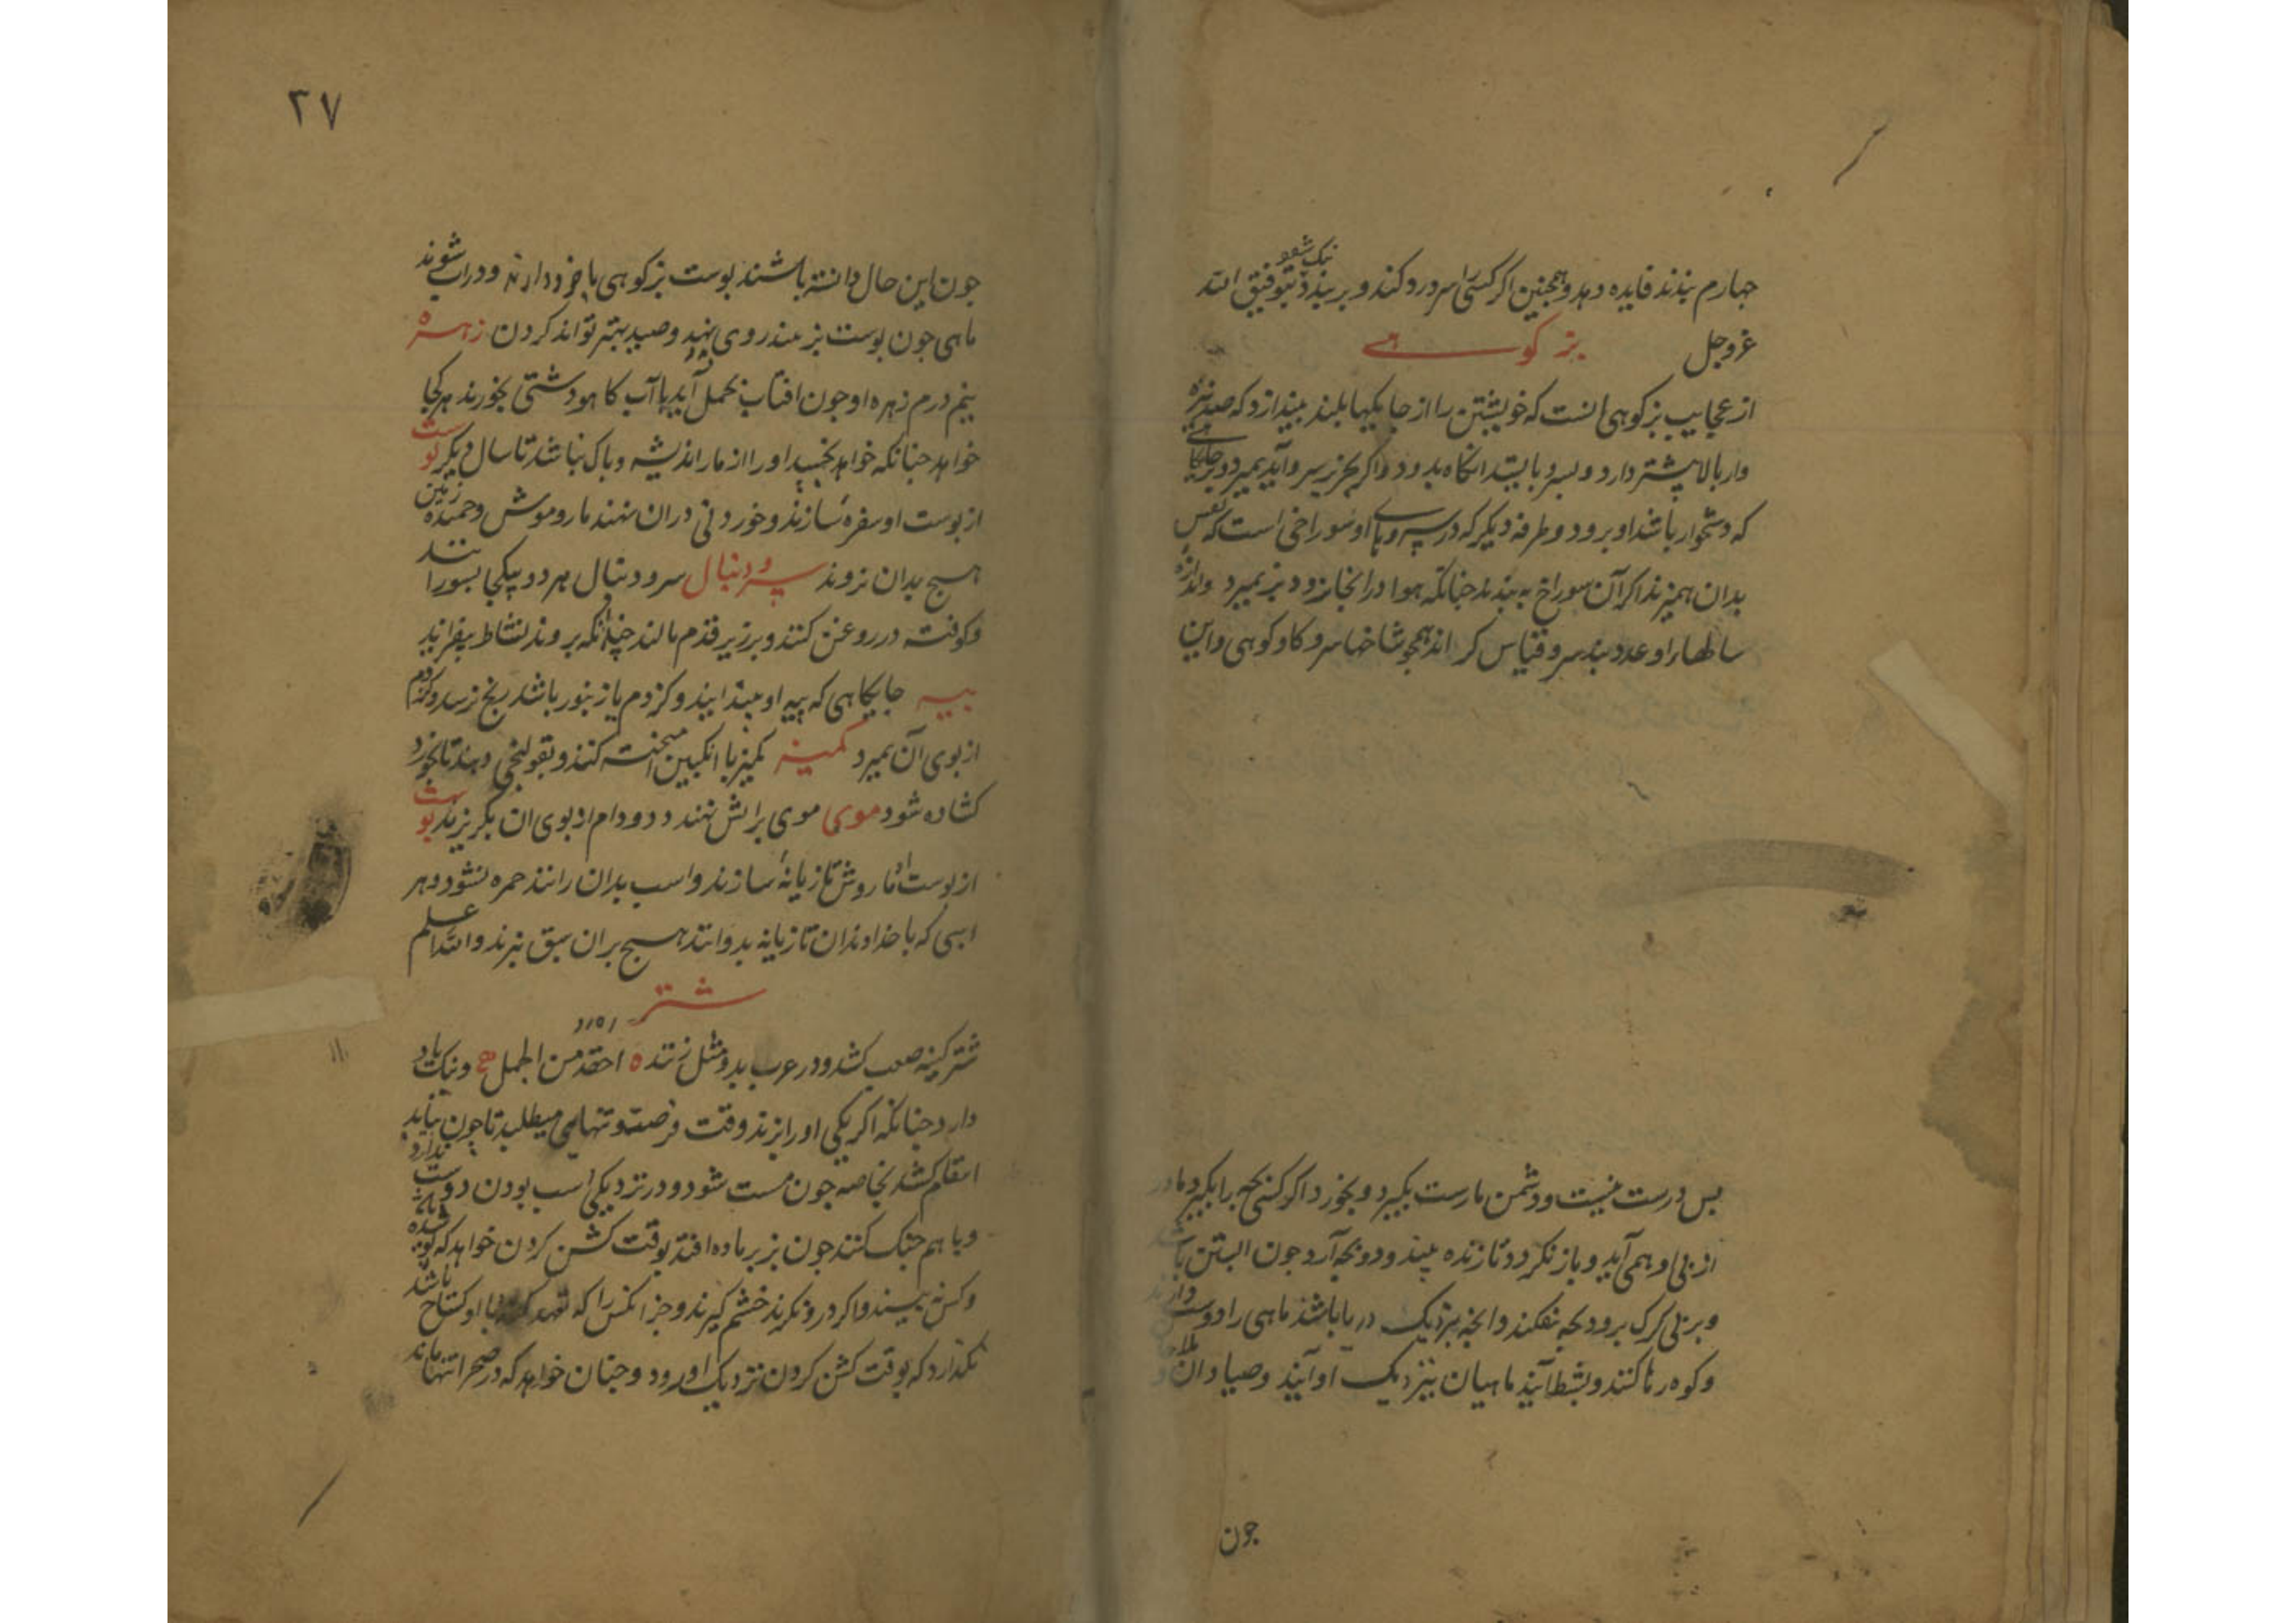 جهارم بندند فایده دهد و همجنین اکر کسی را سر درد کند و بر بندد نیک شود بتوفیق الله
عز و جل بز کوهی
از عجایب بز کوهی انست که خویشتن را از جایکهاء بلند بیندازد که صد نیزه
وار بالا پیشتر دارد و بسرو بایستد انکاه بدود و اکر بجز سرو آید بمیرد و بر جایکاهی
که دشخوار باشد او برود و طرفه دیکر که در سروهاء او سوراخی است که نفس
بدان همیزند اکر آن سوراخ به بندند جنانکه هوا در انجا نرود بز بمیرد و اندازه
سالهاء او عدد بند سرو قیاس کر اند همجو شاخهاء سرو کاو کوهی و این
بس درست نیست و دشمن مارست بکیرد و بخورد اکر کسی بجه را بکیرد مادر
از بی او همی آید و باز نکردد تا زنده بیند و دو بجه آرد جون ابستن باشد
و بر بی کرک برود بجه بفکند و انجه بنزدیک دریا باشد ماهی را دوست دارند
و کوه رها کنند و بشط آیند ماهیان بنزدیک او آیند و صیادان و ملاحان
جون
۲۷
جون این حال دانسته باشند بوست بز کوهی با خود دارند و در اب شوند
ماهی جون بوست بز بیند روی نهد و صید بهتر تواند کردن زهره
بنج درم زهره او جون افتاب بحمل آید با آب کاهو دشتی بخورند هر کجا
خواهد جنانکه خواهد بخسبد او را از مار اندیشه و باک نباشد تا سال دیکر بوست
از بوست او سفره سازند و خوردنی در ان نهند مار و موش و جمنده زمین
هیچ بدان نروند سرو و دنبال سرو و دنبال هر دو بیکجا بسورانند
و کوفته در روغن کنند و بر زیر قدم مالند جندانکه بروند نشاط بیفزاید
بیه جایکاهی که بیه او بیندایند و کزدم یا زنبور باشد رنج نرسد و کزدم
از بوی آن بمیرد کمیز کمیز با انکبین امیخته کنند و بقولنجی دهند تا بخورد
کشاده شود موی موی بر اتش نهند دد و دام از بوی ان بکریزند بوست
از بوست او تازیانه سازند و اسب بدان رانند حمره نشود و هر
اسبی که با خداوندان تازیانه بدوانند هیچ بر ان سبق نبرند و الله اعلم
شتر
شتر کینه صعب کشد و در عرب بدو مثل زنند احقد من الجمل و نیک یاد
دارد جنانکه اکر یکی او را بزند وقت فرصت و تنهایی میطلبد تا جون بیابد
انتقام کشد بخاصه جون مست شود و در نزدیکی اسب بودن دوست ندارد
و با هم جنک کنند جون بز بر ماده افتد بوقت کشن کردن خواهد که بوشیده باشد
و کس نبیند و اکر درو نکرند خشم کیرند و جز انکس را که با او کستاخ باشد
نکذارد که بوقت کشن کردن نزدیک او رود و جنان خواهد که در صحرا تنها ماند